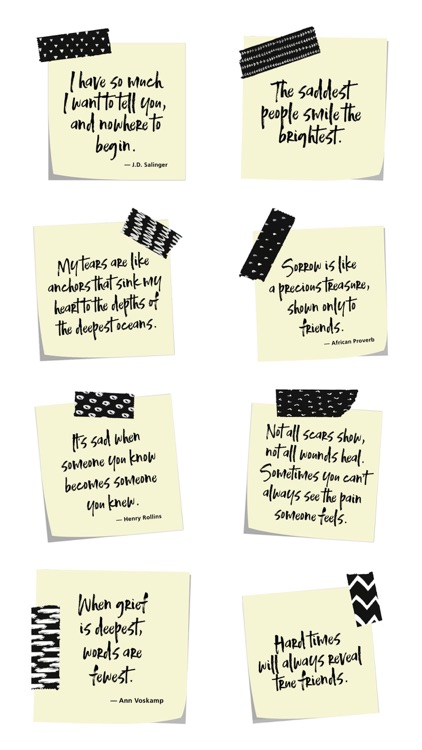 I have so much
I want to tell you,
and nowhere to
begin.
— J.D. Salinger
The saddest
people smile the
brightest.
My tears are like
anchors that sink my
heart to the depths of
the deepest oceans.
Sorrow is like
a precious treasure,
shown only to
friends.
— African Proverb
It's sad when
someone you know
becomes someone
you knew.
— Henry Rollins
Not all scars show,
not all wounds heal.
Sometimes you can't
always see the pain
someone feels.
When grief
is deepest,
words are
fewest.
— Ann Voskamp
Hard times
will always reveal
true friends.